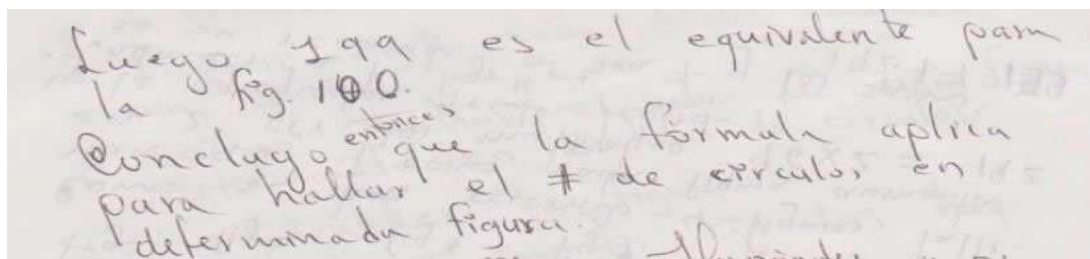 Luego 199 es el equivalente para
la fig. 100.
Concluyo entonces que la formula aplica
para hallar el # de circulos en
determinada figura.